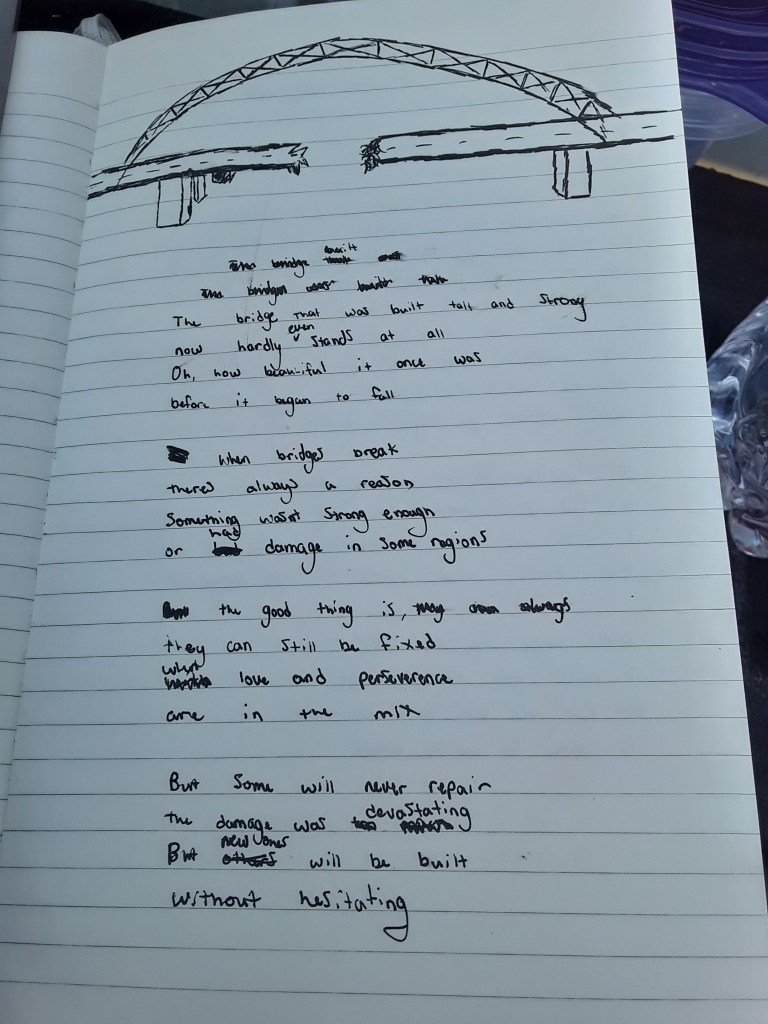 The bridge built
The bridges were built that
The bridge that was built tall and strong
now hardly even stands at all
Oh, how beautiful it once was
before it began to fall
When bridges break
theres always a reason
Something wasnt strong enough
or had damage in some regions
the good thing is, always
they can still be fixed
when love and perseverence
are in the mix
But some will never repair
the damage was devastating
But new ones will be built
without hesitating